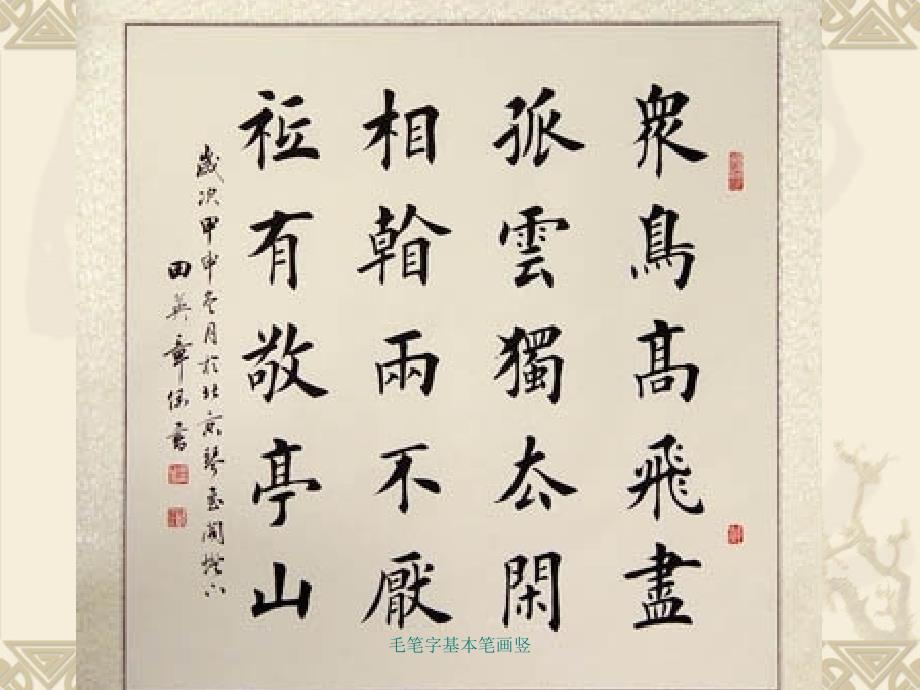 衆鳥髙飛盡
孤雲獨去閑
相看兩不厭
祗有敬亭山
歲次甲申冬月於北京琴閣燈下
田英章書
毛笔字基本笔画竖